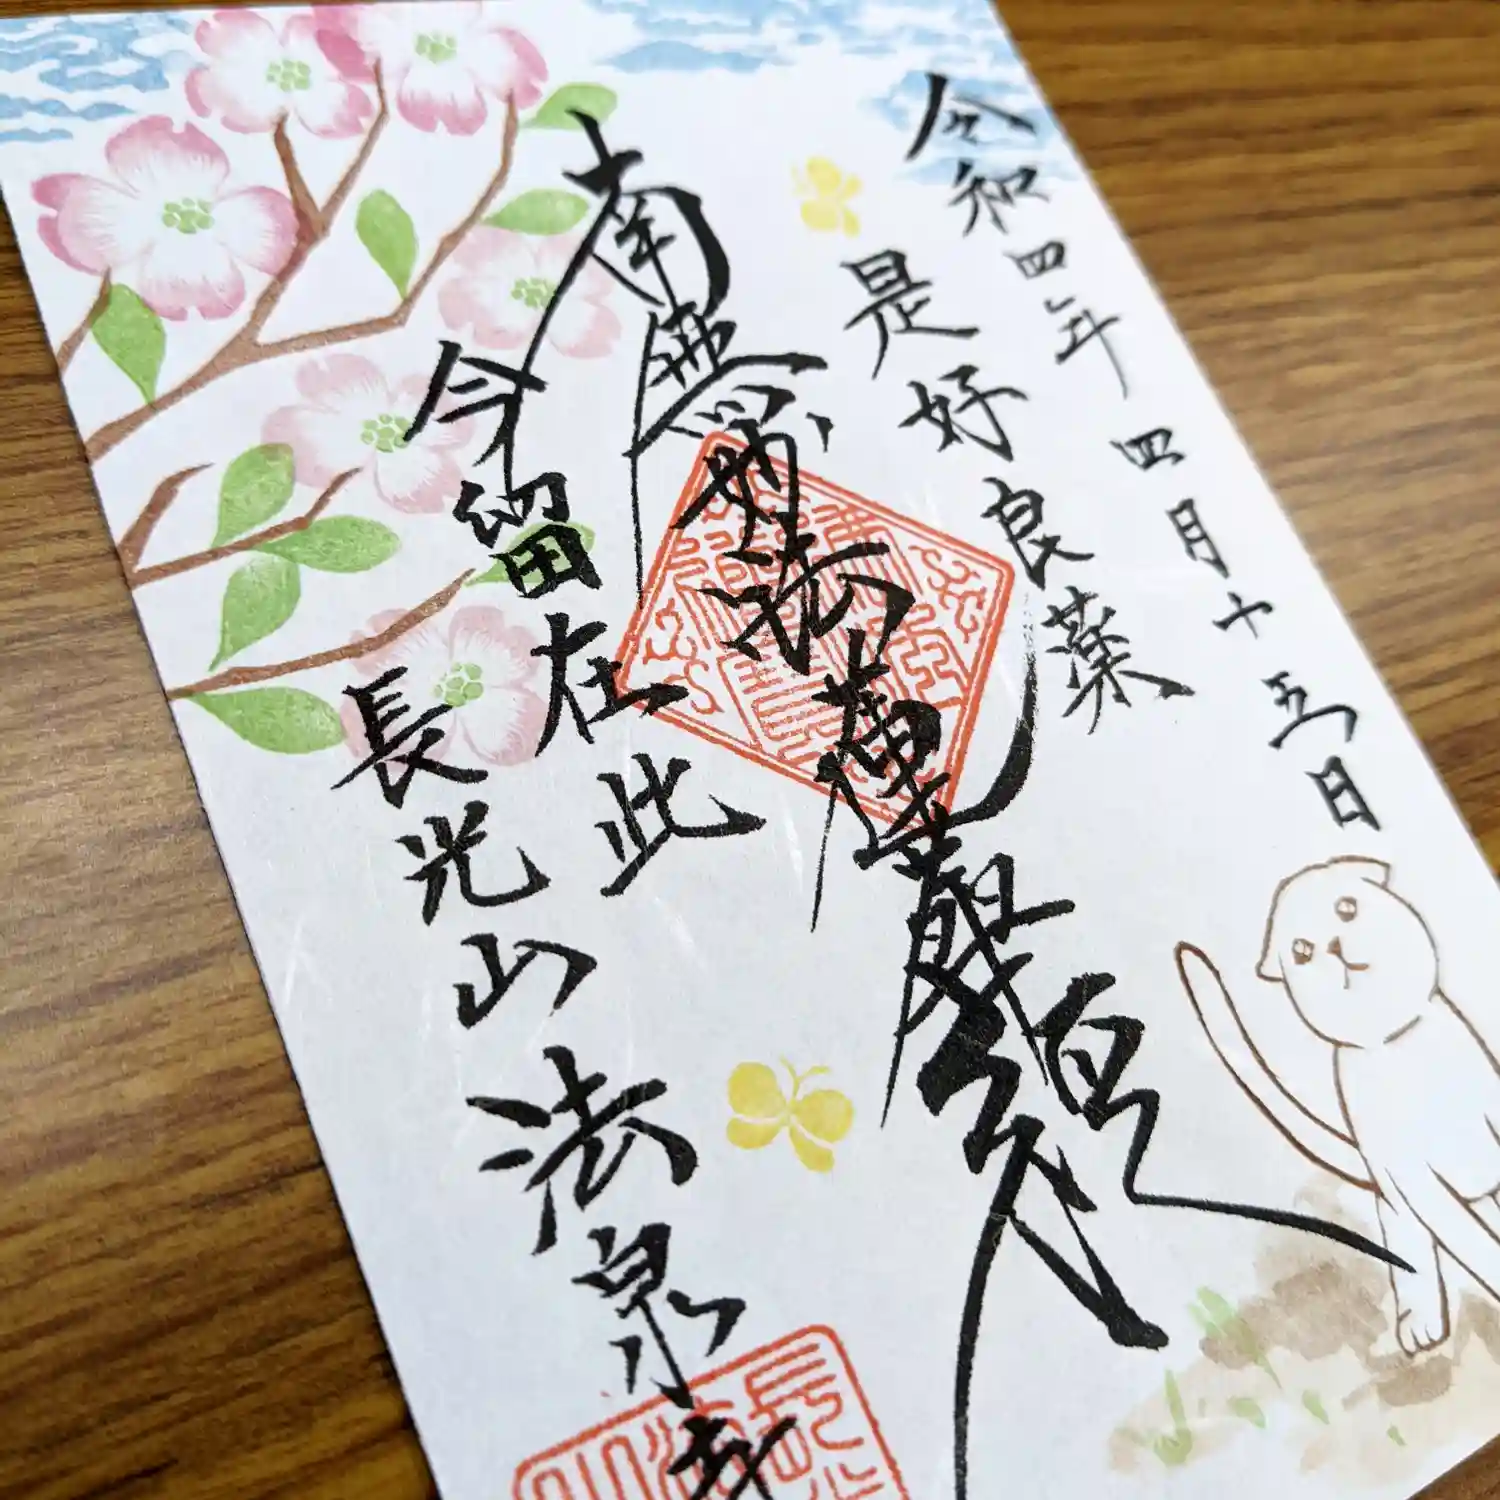 令和四年四月十五日
是好良薬
南無妙法蓮華経
今留在此
長光山
法泉寺